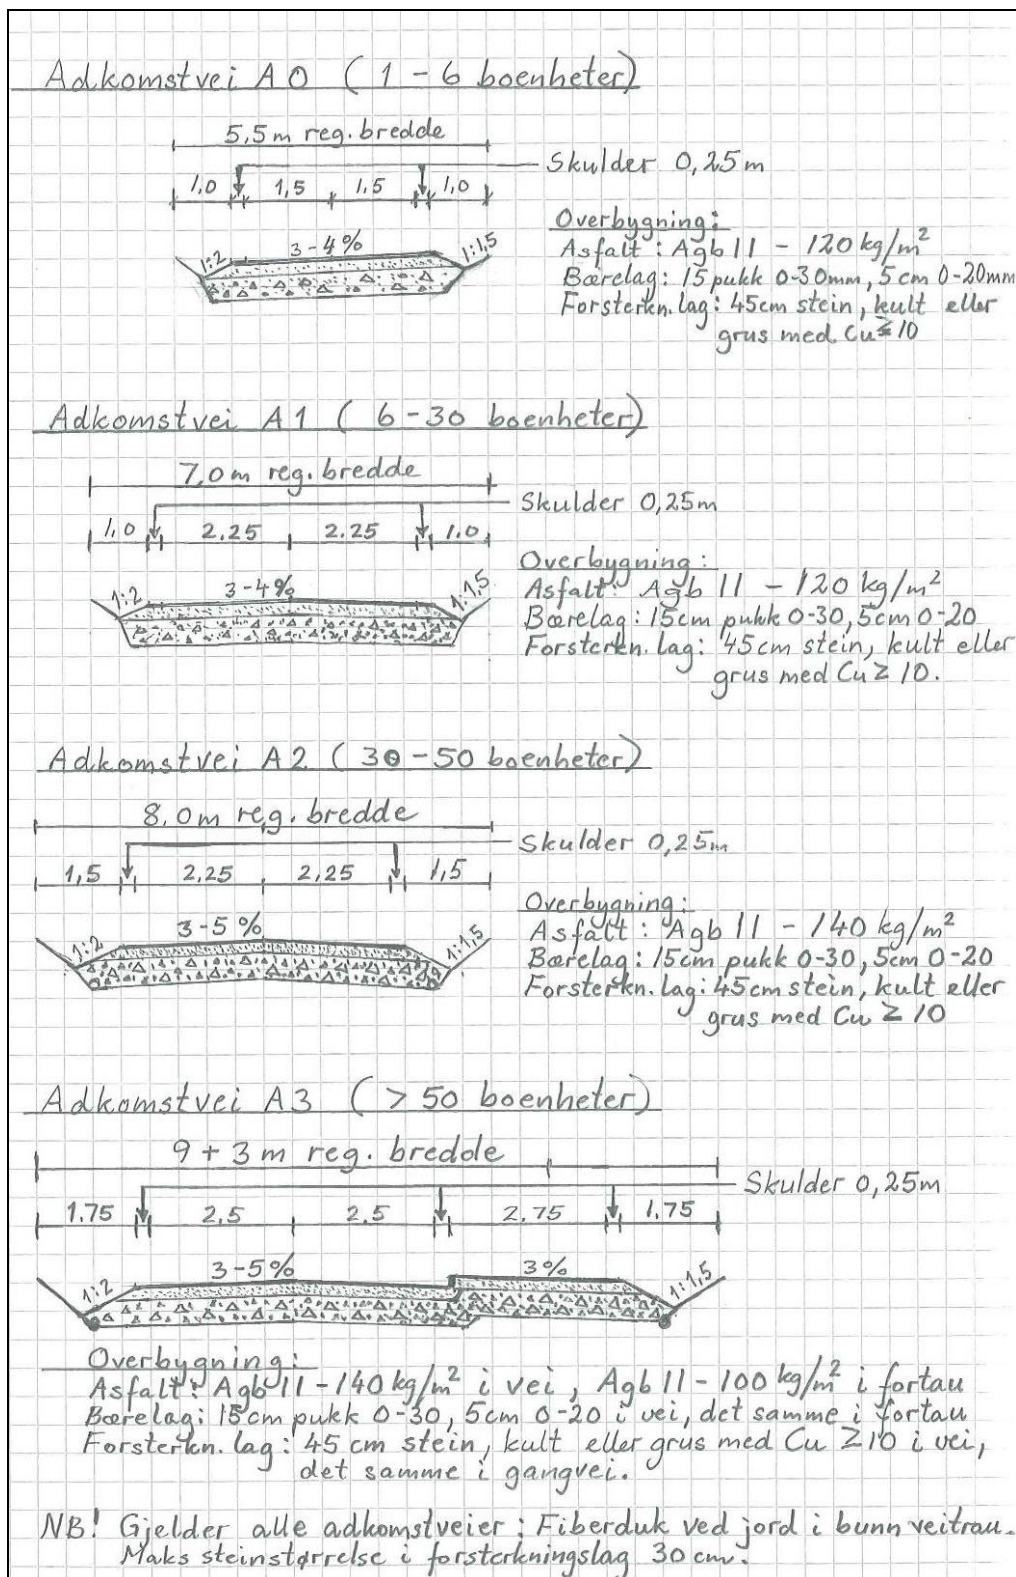 Adkomstvei A0 (1 - 6 boenheter)
5,5m reg. bredde
Skulder 0,25m
1,0 1,5 1,5 1,0
1:2 3-4% 1:1,5
Overbygning:
Asfalt: Agb 11 - 120 kg/m²
Bærelag: 15 pukk 0-30mm, 5 cm 0-20mm
Forsterkn. lag: 45cm stein, kult eller
grus med Cu ≤ 10
Adkomstvei A1 ( 6-30 boenheter)
7,0m reg. bredde
Skulder 0,25m
1,0 2.25 2.25 1,0
1:2 3-4% 1:1,5
Overbygning:
Asfalt: Agb 11 - 120 kg/m²
Bærelag: 15cm pukk 0-30, 5cm 0-20
Forsterkn. lag: 45cm stein, kult eller
grus med Cu ≥ 10.
Adkomstvei A2 (30-50 boenheter)
8,0m reg. bredde
Skulder 0,25m
1,5 2,25 2,25 1,5
1:2 3-5% 1:1,5
Overbygning:
Asfalt: Agb 11 - 140 kg/m²
Bærelag: 15cm pukk 0-30, 5cm 0-20
Forsterkn. lag: 45cm stein, kult eller
grus med Cu ≥ 10
Adkomstvei A3 (> 50 boenheter)
9 + 3 m reg. bredde
Skulder 0,25m
1.75 2,5 2,5 2,75 1,75
1:2 3-5% 3% 1:1,5
Overbygning:
Asfalt: Agb 11-140 kg/m² i vei, Agb 11-100 kg/m² i fortau
Bærelag: 15cm pukk 0-30, 5cm 0-20 i vei, det samme i fortau
Forsterkn. lag: 45 cm stein, kult eller grus med Cu ≥10 i vei,
det samme i gangvei.
NB! Gjelder alle adkomstveier: Fiberduk ved jord i bunn veitrau.
Maks steinstørrelse i forsterkningslag 30 cm.